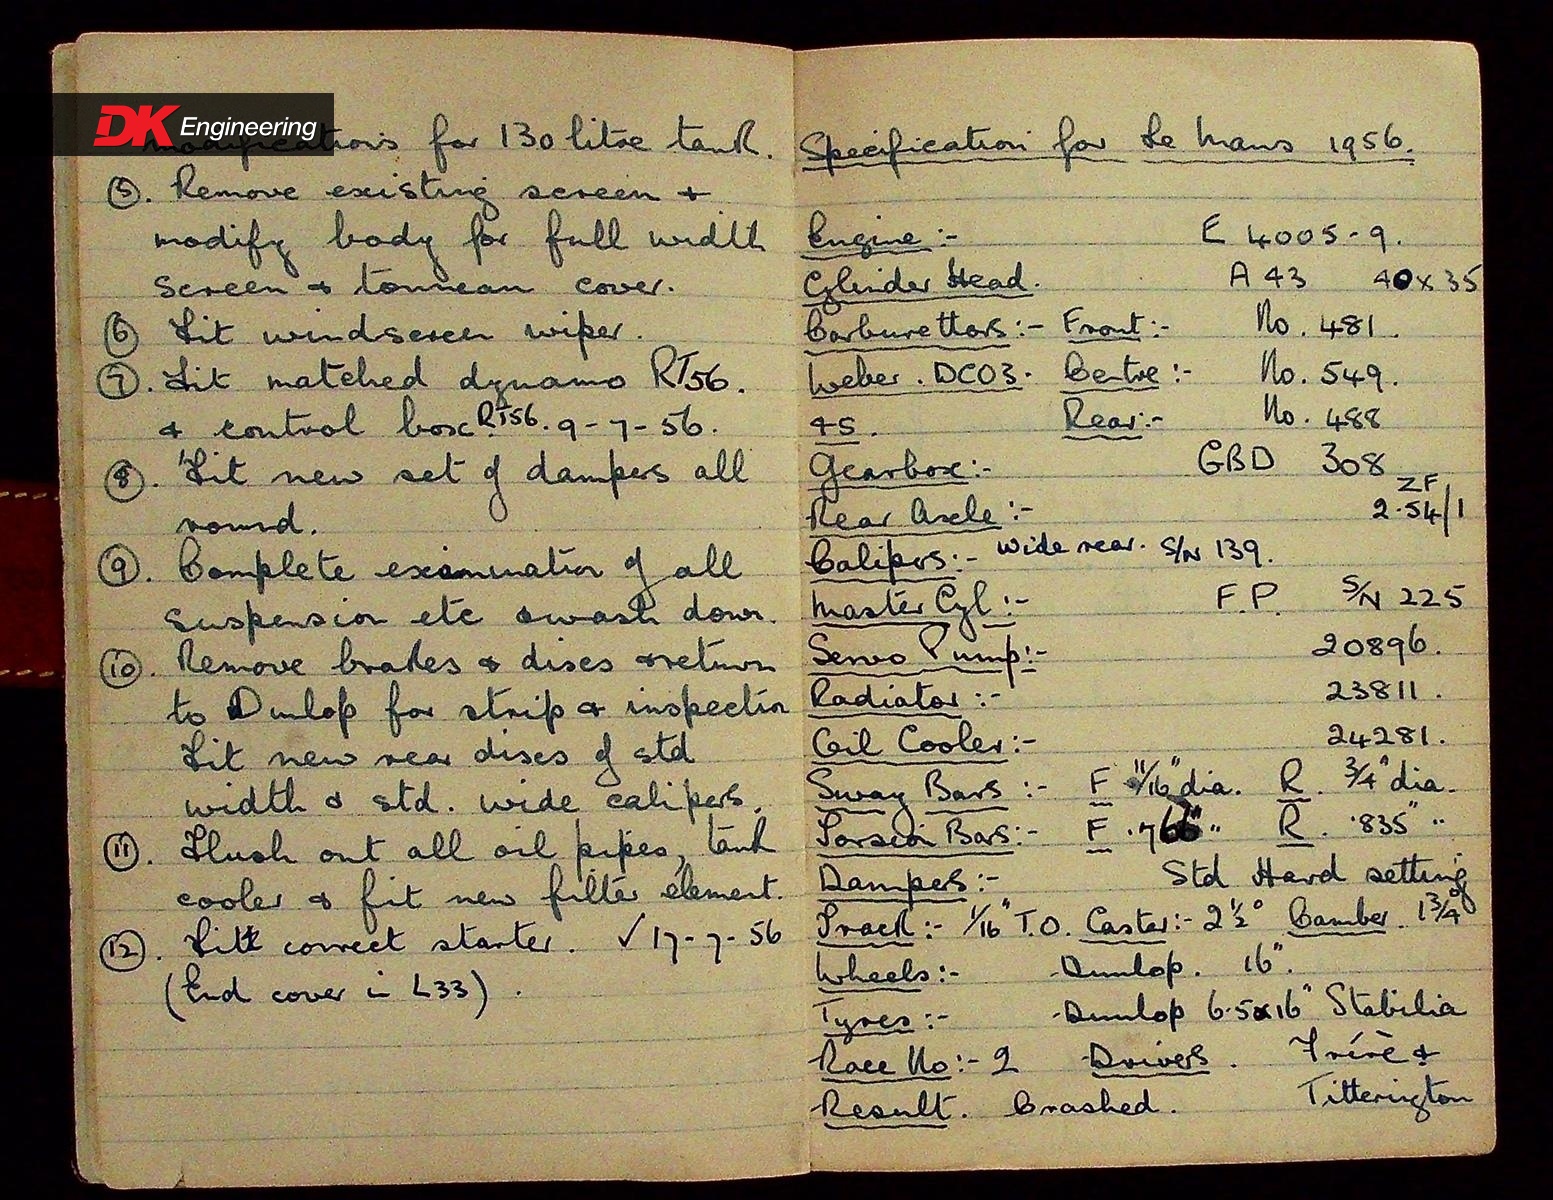 DK Engineering
modifications for 130 litre tank.
⑤. Remove existing screen +
modify body for full width
screen + tonneau cover.
⑥ Fit windscreen wiper.
⑦. Fit matched dynamo RT56.
+ control box RT56. 9-7-56.
⑧. Fit new set of dampers all
round.
⑨. Complete examination of all
suspension etc + wash down.
⑩. Remove brakes + discs + return
to Dunlop for strip + inspection
Fit new rear discs of std
width + std. wide calipers.
⑪. Flush out all oil pipes, tank
cooler + fit new filter element.
⑫. Fit correct starter. ✓ 17-7-56
(End cover in L33).
Specification for Le Mans 1956.
Engine:- E 4005-9.
Cylinder Head. A 43 40 x 35
Carburettors:- Front:- No. 481.
Weber. DCO3. Centre:- No. 549.
45. Rear:- No. 488
Gearbox:- GBD 308
ZF
Rear Axle:- 2.54/1
Calipers:- Wide rear. S/N 139.
Master Cyl:- F.P. S/N 225
Servo Pump:- 20896.
Radiator:- 23811.
Oil Cooler:- 24281.
Sway Bars:- F 11/16" dia. R. 3/4" dia.
Torsion Bars:- F .766" " R. .835" "
Dampers:- Std Hard setting
Track:- 1/16" T.O. Caster:- 2½° Camber. 1¾°
Wheels:- Dunlop. 16".
Tyres:- Dunlop 6.5x16" Stabilia
Race No:- 2 Drivers. Frére +
Result. Crashed. Titterington